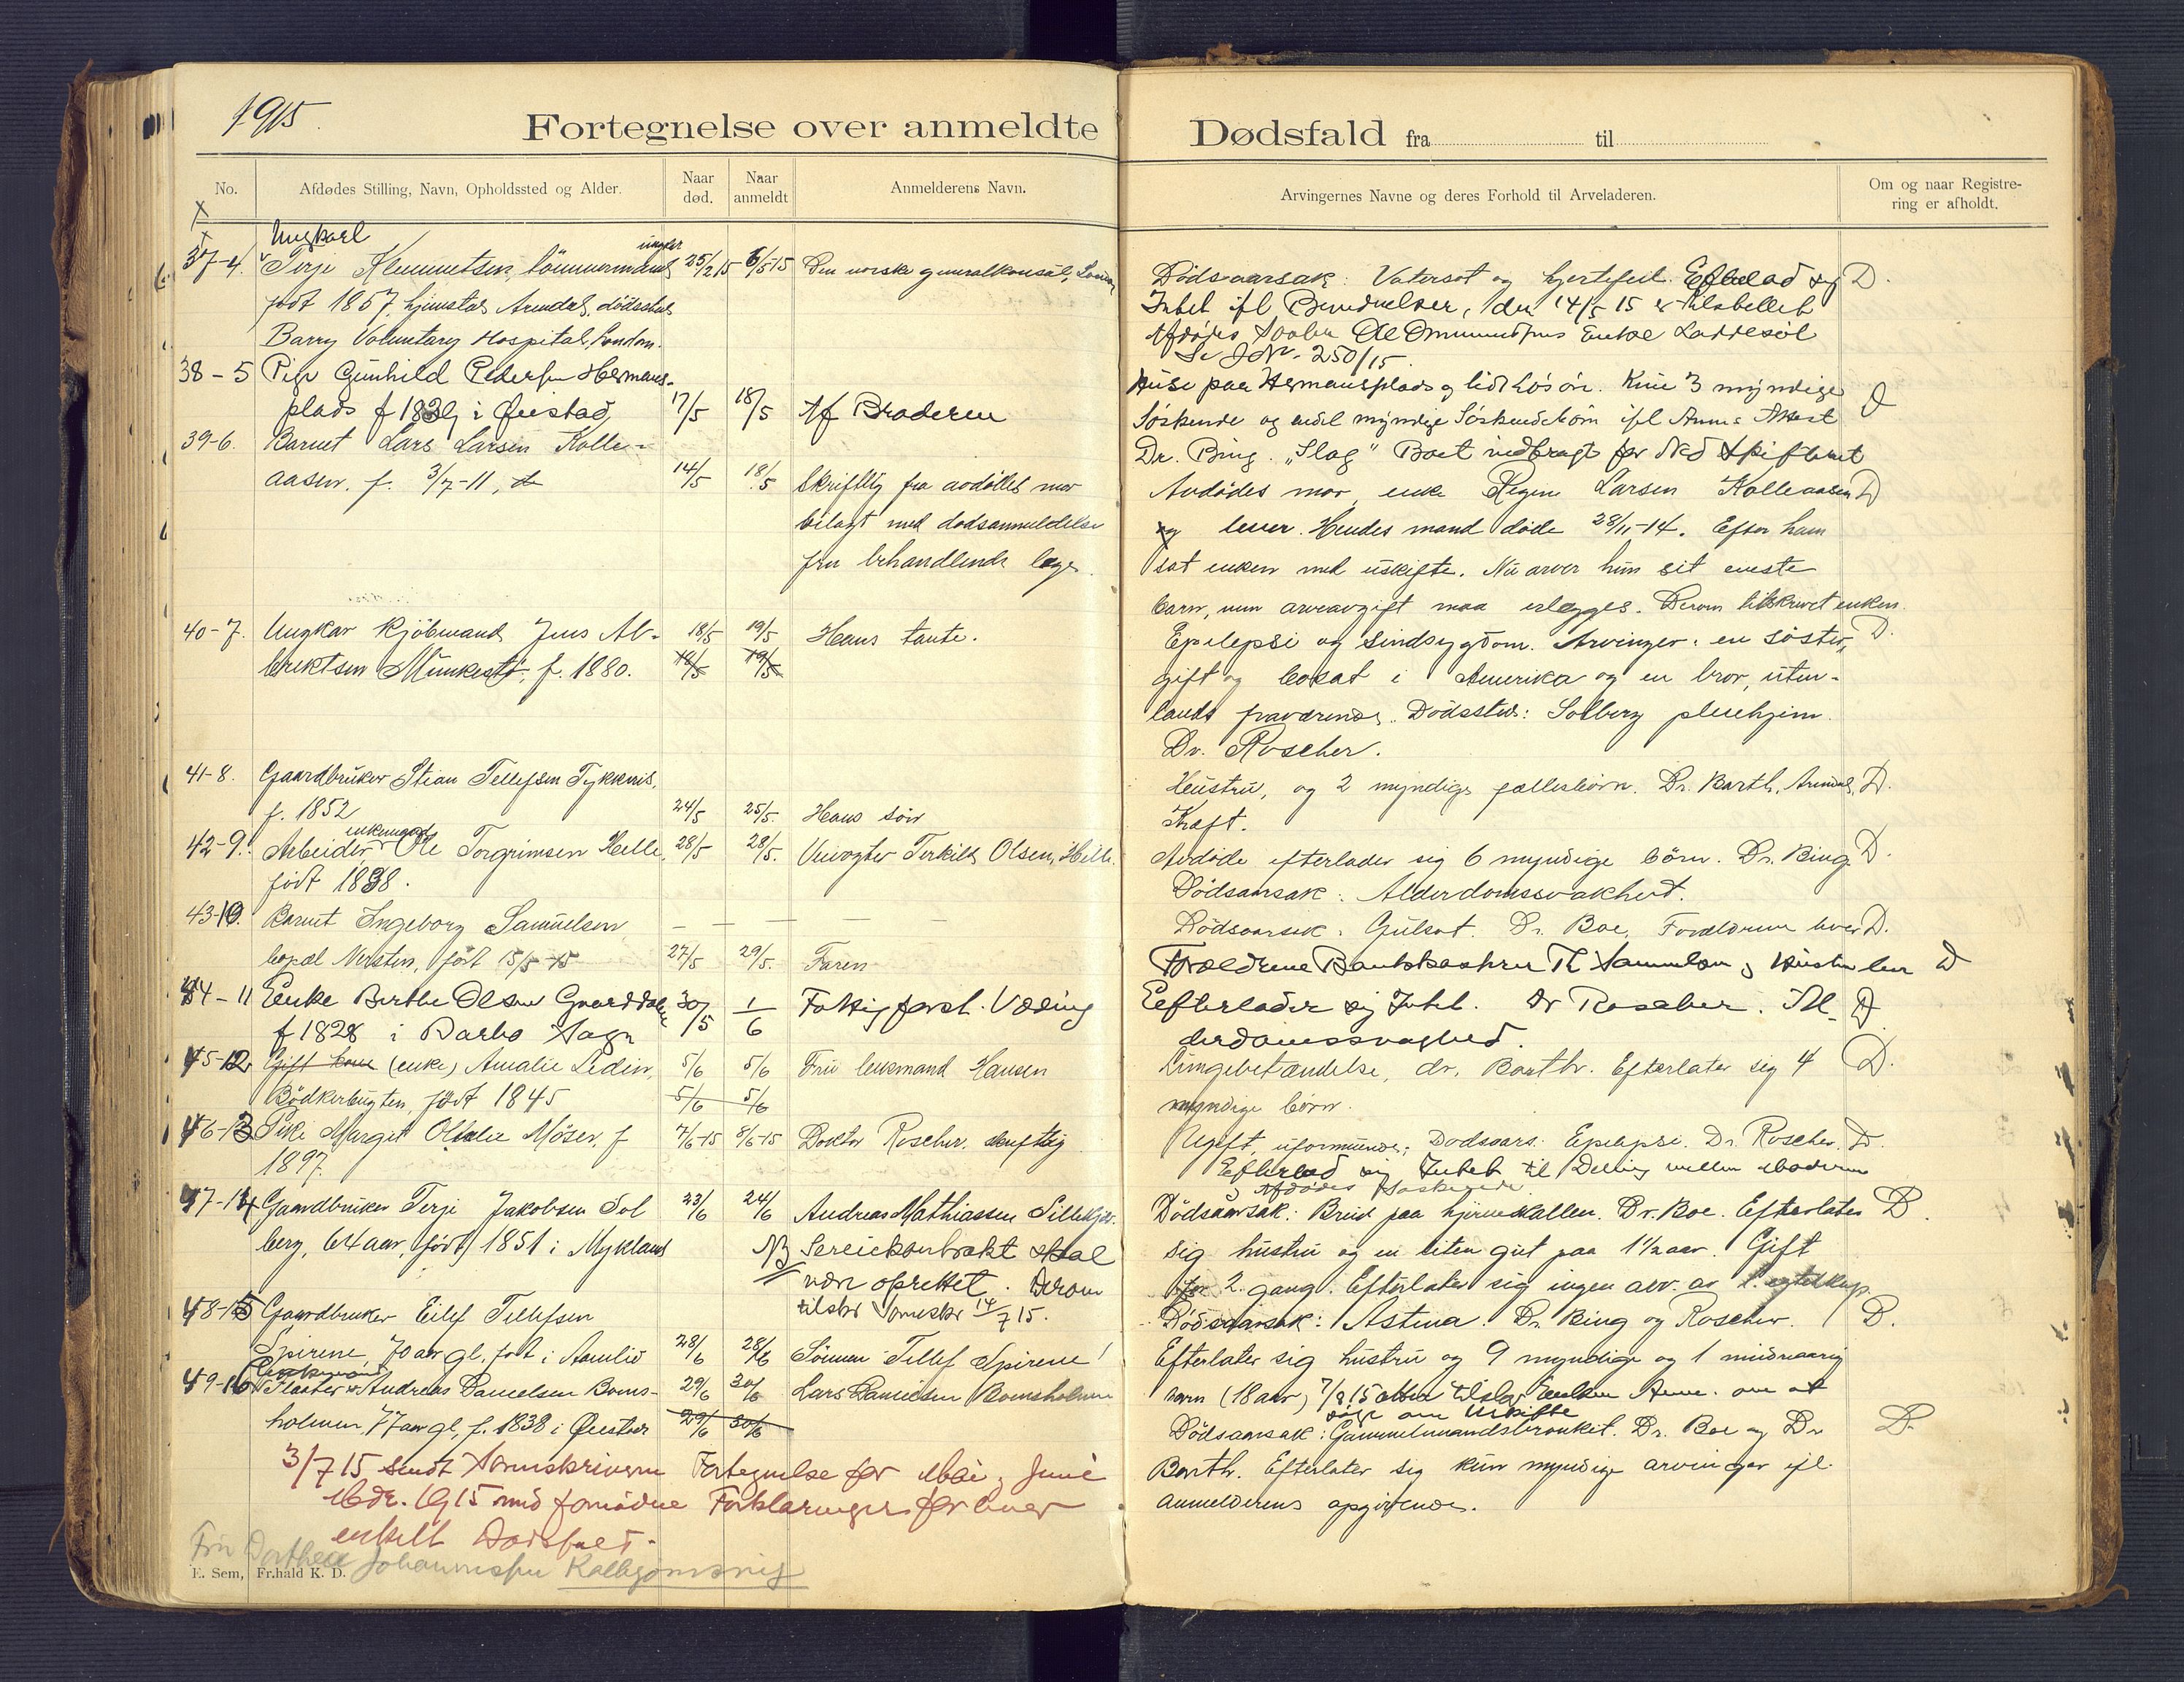 1915.
Fortegnelse over anmeldte Dødsfald fra til
No.
Afdødes Stilling, Navn, Opholdssted og Alder.
Naar død.
Naar anmeldt
Anmelderens Navn.
Arvingernes Navne og deres Forhold til Arveladeren.
Om og naar Registrering er afholdt.
Ungkarl
37-4. Terje Klemmetsen, tömmermand 25/2 15 6/5-15 Den norske generalkonsul, London
født 1857, hjemsted Arendal, dødssted
Barry Voluntary Hospital, London.
Dödsaarsak: Vatersot og hjertefeil. Efterlod sig D.
Intet ifl. 14/5 15
Enke Laddesøl
Se J.Nr. 250/15
38-5 Pige Gunhild Pedersen Hermans-
plads f 1839 i Øiestad 17/5 18/5 Af Broderen
Huse paa Hermansplads og lidt Løsøre. Kun 3 myndige
Söskende og endel myndige Söskendebörn ifl Anm. Attest D
Dr. Bing. "Slag" Boet indbragt for Ned Skifteret
39-6. Barnet Lars Larsen Kolle-
aasen. f. 3/7-11, 14/5 18/5 Skriftlig fra avdødes mor
bilagt med dødsanmeldelse
fra behandlende læge.
Avdødes mor, enke Regine Larsen Kolleaasen D
lever. Hendes mand døde 28/11-14. Efter ham
sat enken med uskifte. Nu arver hun sit eneste
barn, men arveavgift maa erlægges. Derom tilskrevet enken.
40-7. Ungkar Kjöbmand Jens Al- 18/5 19/5 Hans tante.
briktsen Munkestö, f. 1880. 18/5 19/5
Epilepsi og Sindsygdom. Arvinger: en söster, D.
gift og bosat i Amerika og en bror, uten-
lands fraværende. Dödssted: Solberg pleiehjem.
Dr. Roscher.
41-8. Gaardbruker Stian Tellefsen Tykknis,
f. 1852 24/5 25/5. Hans sön
Hustru, og 2 myndige fællesbörn. Dr. Barth, Arendal, D.
Kræft.
enkemand
42-9. Arbeider Ole Torgrimsen Helle, 28/5 28/5. Veivogter Terkild Olsen, Helle.
født 1838.
Avdøde efterlader sig 6 myndige börn. Dr. Bing D.
Dödsaarsak: Alderdomssvakhet.
43-10. Barnet Ingeborg Samuelsen
bopæl Nersten, født 15/5-15 27/5 29/5. Faren
Dödsaarsak: Gulsot. Dr. Boe. Forældrene lever D.
Forældrene Bankkasserer Th Samuelsen og Hustru lever D
44-11 Enke Berthe Olsen Gaarddalen 30/5 1/6 Fattigforst. Vøding
f 1828 i Barbo Sogn
Efterlader sig Intet. Dr Roscher. Al- D
derdomssvaghed.
45-12. Gift kone (enke) Amalie Ledin, 5/6 5/6 Fru lensmand Hansen
Bödkerbugten, født 1845 5/6 5/6
Lungebetændelse, dr. Barth. Efterlater sig 4 D.
myndige børn.
46-13 Pike Margit Othilie Möser, f 7/6-15 8/6-15 Doktor Roscher skriftlig
1897.
Ugift, uformuende; Dødsaars: Epilepsi. Dr. Roscher. D.
Efterlod sig Intet til Deling mellem Moderen
og Afdødes Søskende
47-14 Gaardbruker Terje Jakobsen Sol 23/6 24/6 Andreas Mathiassen Lillekjær.
berg, 64 aar, født 1851 i Mykland
NB skal
være oprettet. Derom
14/7 15.
Dödsaarsak: Brud paa hjerneskallen. Dr. Boe. Efterlater D.
sig hustru og en liten gut paa 1½ aar. Gift
for 2. gang. Efterlater sig ingen arv. av 1. egteskap.
48-15 Gaardbruker Eilef Tellefsen
Spirene, 70 aar gl. født i Aamlid 28/6 28/6 Sönnen Tellef Spirene
Dödsaarsak: Astma. Dr. Bing og Roscher. D.
Efterlater sig hustru og 9 myndige og 1 mindreaarig
barn (18 aar) 7/8 15 Enken Anne. om at
Uskifte
49-16 Andreas Danielsen Boms- 29/6 30/6 Lars Danielsen Bomsholmen
holmen, 77 aar gl., f. 1838 i Øiestad 29/6 30/6
Dödsaarsak: Gammelmandsbronkit. Dr. Boe og Dr D.
Barth. Efterlater sig kun myndige arvinger ifl.
anmelderens opgivende.
3/7 15 sendt Sorenskriveren Fortegnelse for Mai og Juni
Mdr. 1915 med fornødne Forklaringer for hver
enkelt Dødsfald.
Fru Dorthea Johannesen Kolbjømsvig
E. Sem, Fr.hald K. D.